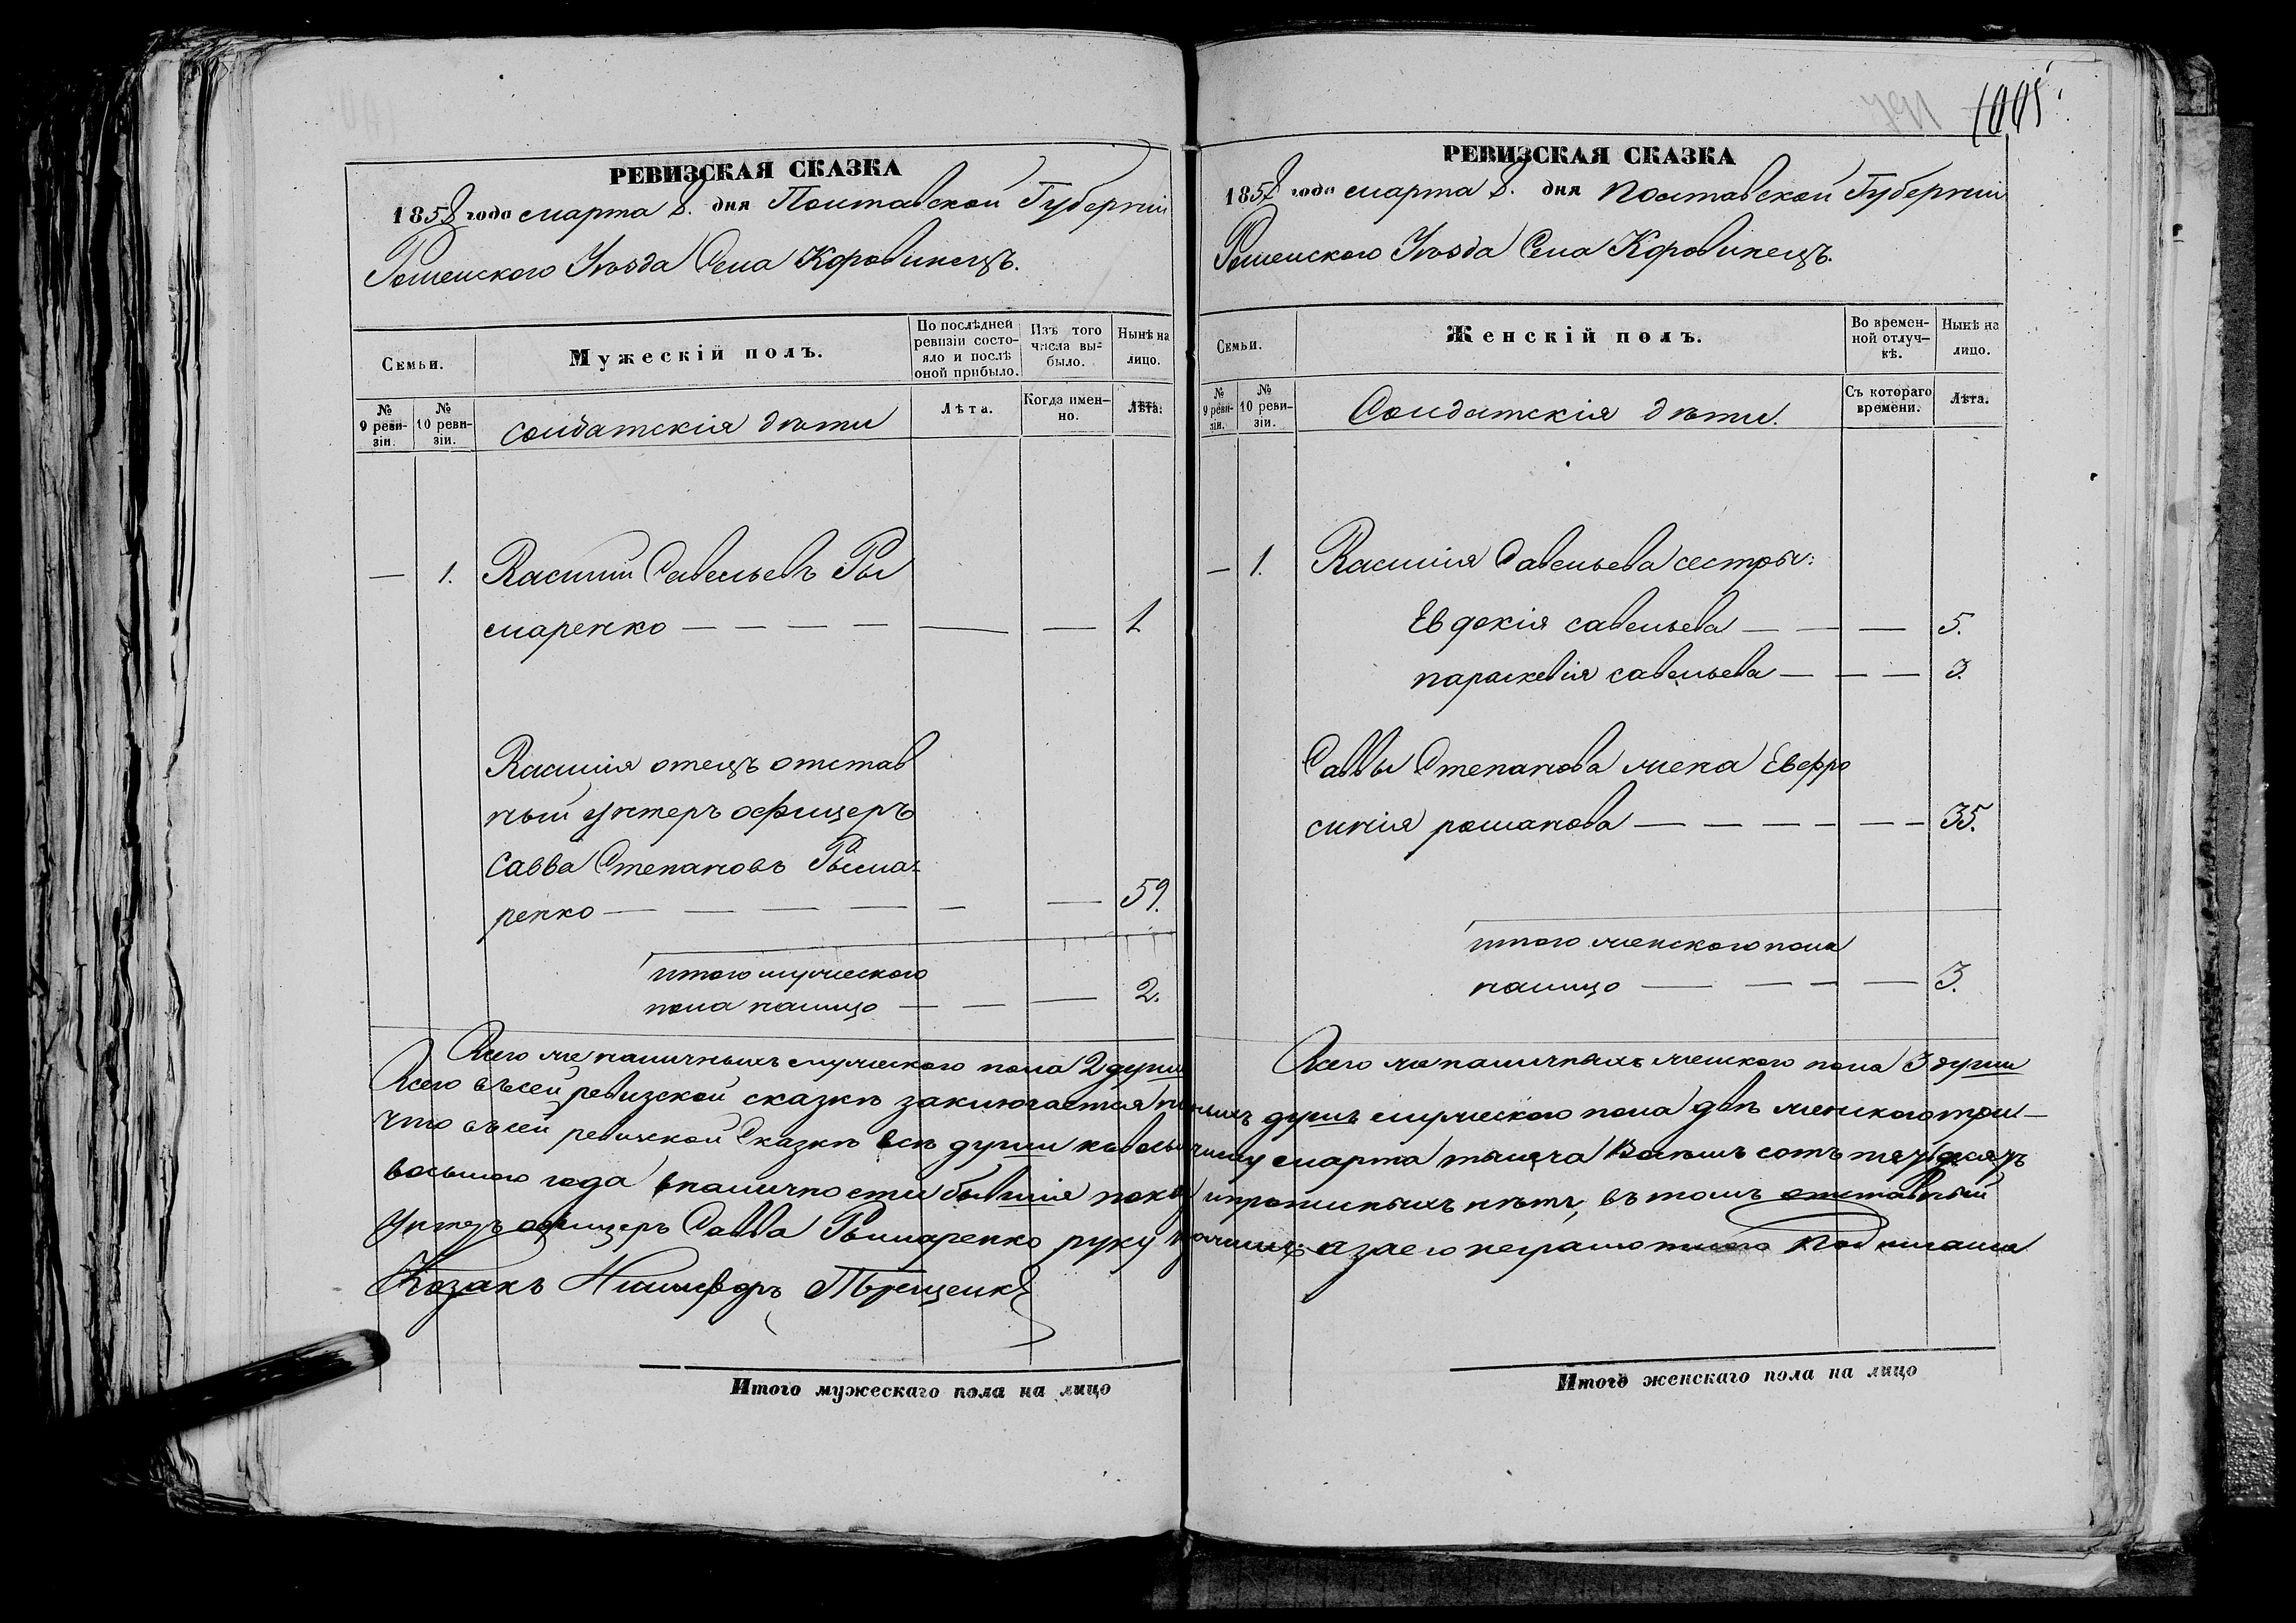 1005
РЕВИЗСКАЯ СКАЗКА
1858 года марта 8. дня Полтавской Губерніи
Роменского Уѣзда Села Коровинецъ.
Семьи.
Мужескій полъ.
По послѣдней ревизіи состояло и послѣ оной прибыло.
Изъ того числа выбыло.
Нынѣ на лицо.
№ 9 ревизіи.
№ 10 ревизіи.
солдатскія дѣти
Лѣта.
Когда именно.
Лѣта.
— 1. Василий Савельевъ Ры
маренко — — — — — — 1
Василія отецъ отстав
ный унтеръ офицеръ
Савва Степановъ Рыма-
ренко — — — — — — 59.
итого мужеского
пола налицо — — — 2.
Всего же наличныхъ мужеского пола 2 души
РЕВИЗСКАЯ СКАЗКА
1858 года марта 8. дня Полтавской Губерніи
Роменского Уѣзда Села Коровинецъ.
Семьи.
Женскій полъ.
Во временной отлучкѣ.
Нынѣ на лицо.
№ 9 ревизіи.
№ 10 ревизіи.
Солдатскія дѣти.
Съ котораго времени.
Лѣта.
— 1. Василія Савельева сестры:
Евдокія савельева — — — 5.
параскевія савельева — — — 3.
Саввы Степанова жена Евфро
синія романова — — — — — — 35.
итого женского пола
налицо — — — — 3.
Всего же наличныхъ женского пола 3 души
Всего въ сей ревизской сказкѣ заключается душъ мужеского пола двѣ женского три —
что въ сей ревизской Сказкѣ всѣ души марта тысяча Восемь сотъ пятдесятъ
восьмого года вналичности бывшія и прописныхъ нѣтъ, въ томъ отставный
Унтеръ офицеръ Савва Рымаренко руку а за его неграмотного подписался
Козакъ Никифоръ
Итого мужескаго пола на лицо
Итого женскаго пола на лицо